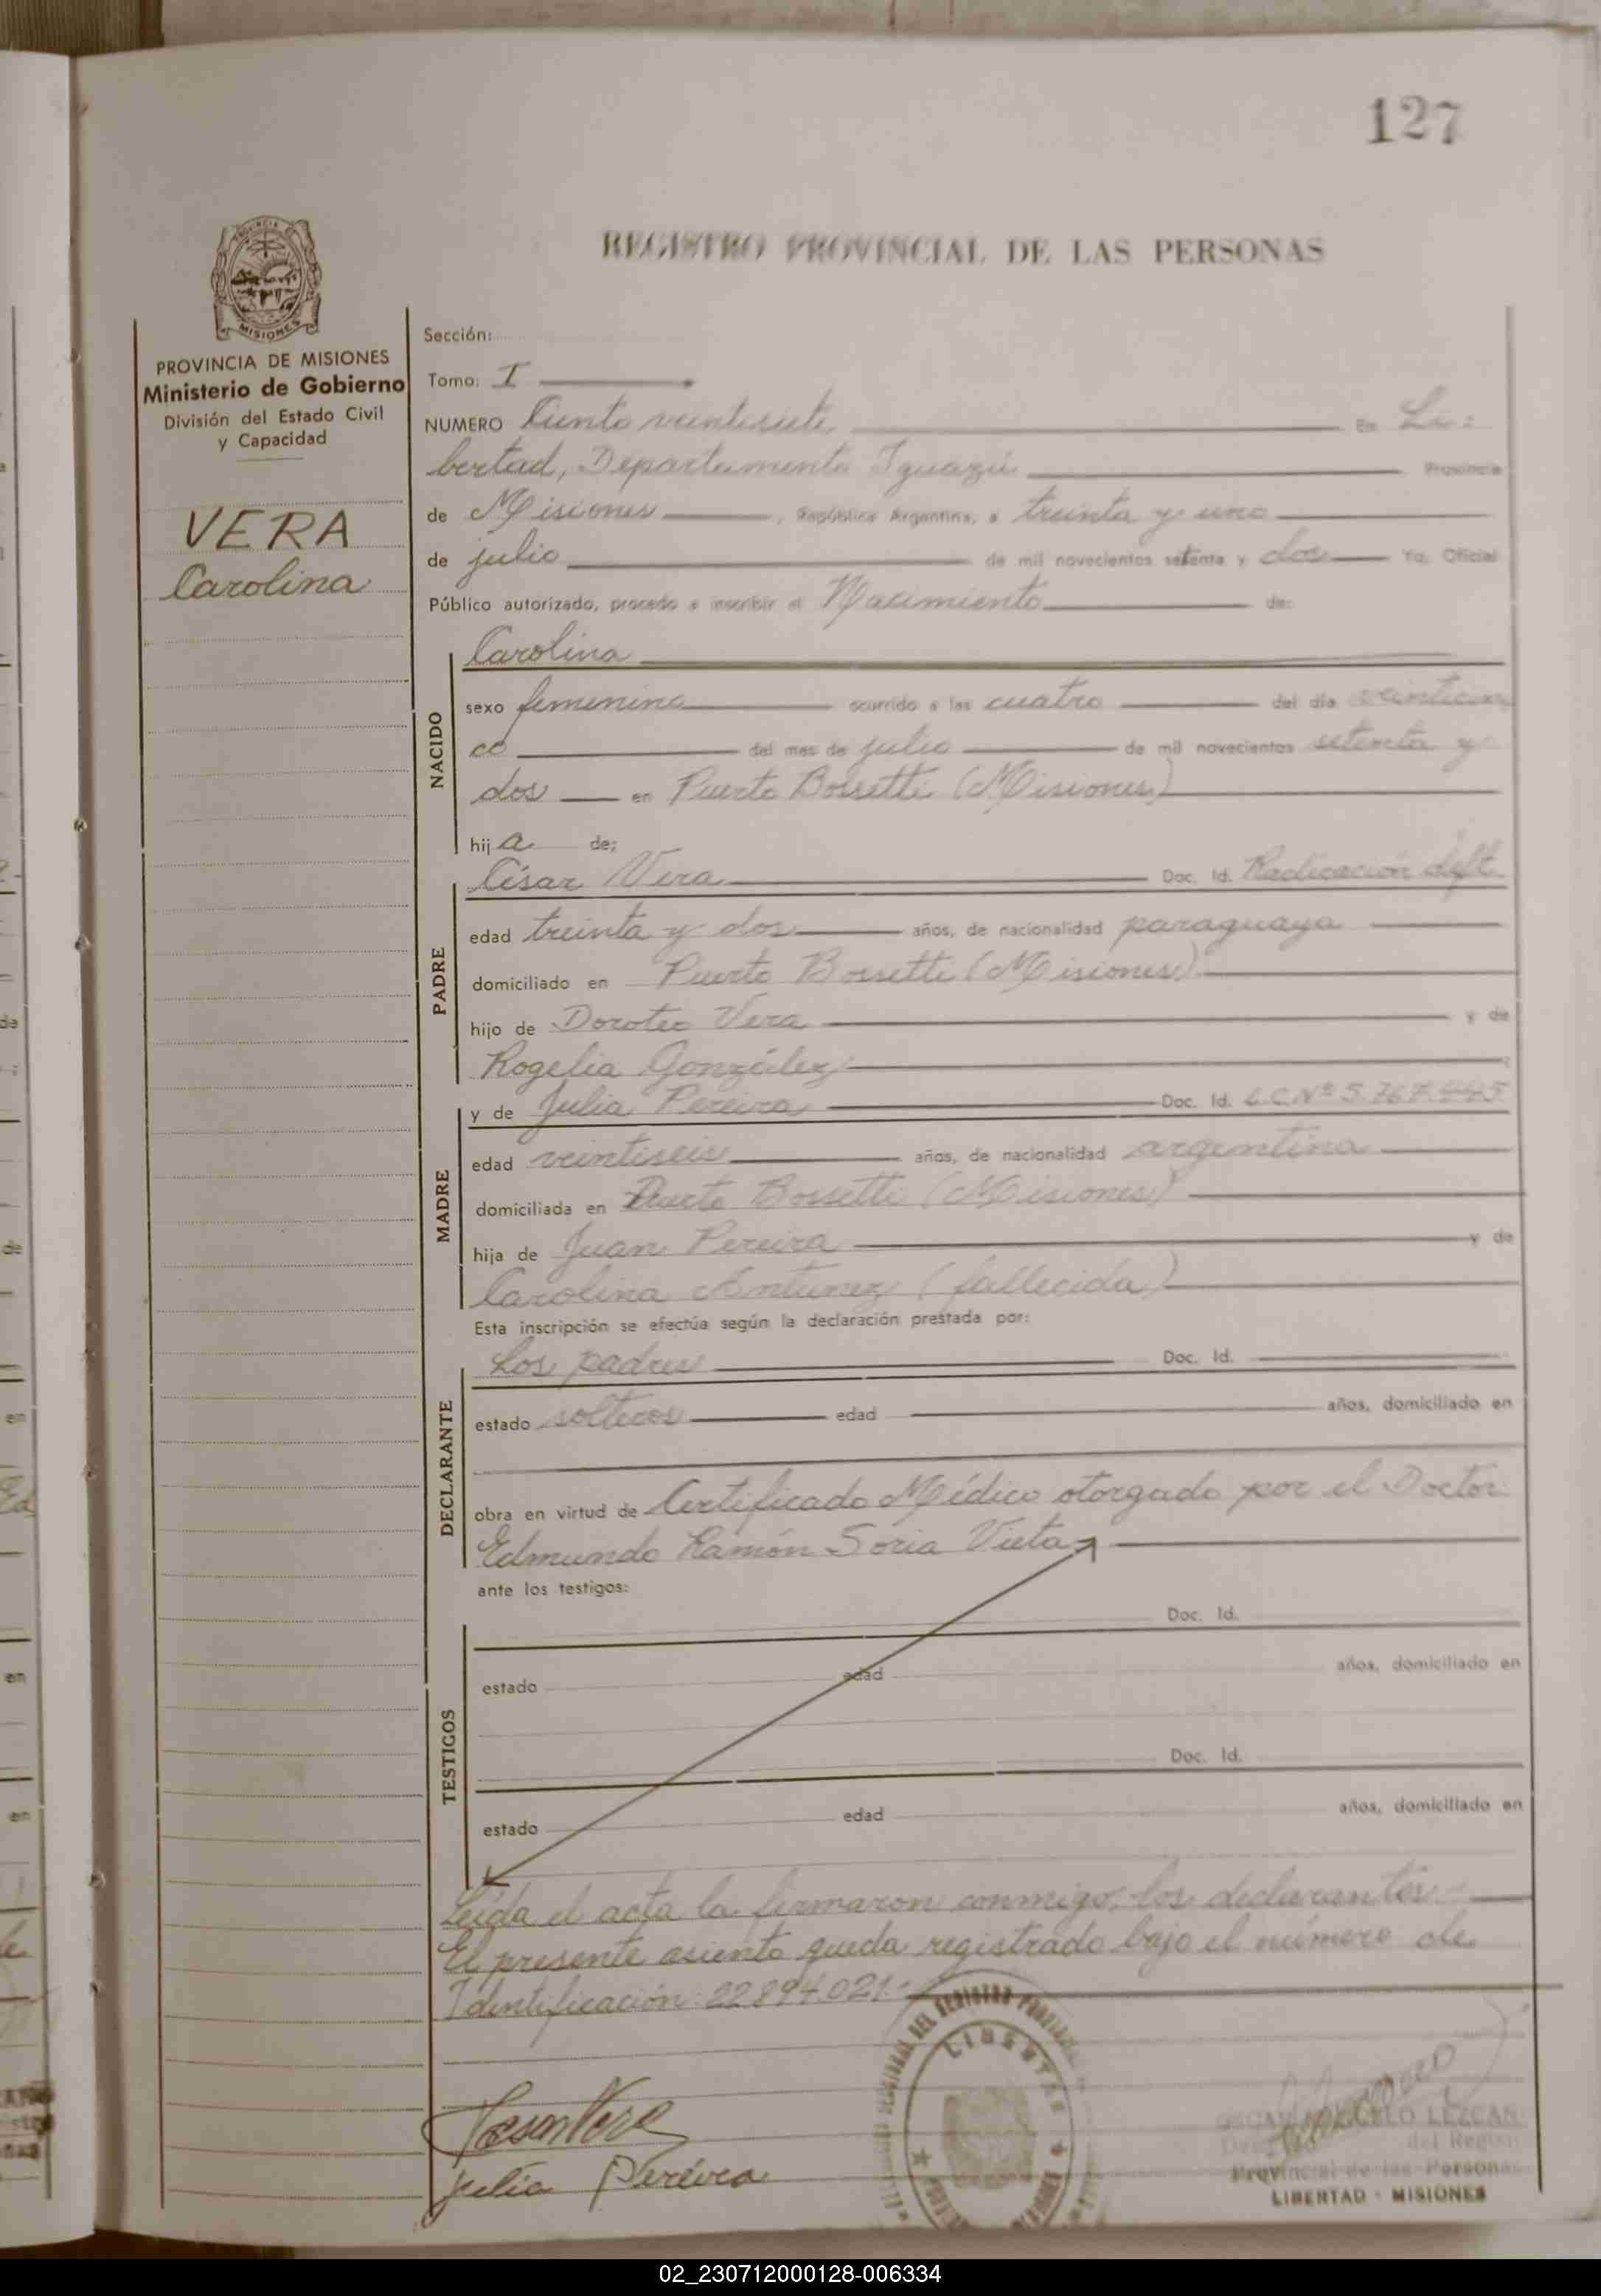 127
REGISTRO PROVINCIAL DE LAS PERSONAS
MISIONES
PROVINCIA DE MISIONES
Ministerio de Gobierno
División del Estado Civil
y Capacidad
VERA
Carolina
Sección:
Tomo: I
NUMERO Ciento veintisiete En Li=
bertad, Departamento Iguazú Provincia
de Misiones, República Argentina, a treinta y uno
de julio de mil novecientos setenta y dos Yo, Oficial
Público autorizado, procedo a inscribir el Nacimiento de:
NACIDO
Carolina
sexo femenino ocurrido a las cuatro del día veinticin
co del mes de julio de mil novecientos setenta y
dos en Puerto Bossetti (Misiones)
hija de:
PADRE
César Vera Doc. Id. Radicación
edad treinta y dos años, de nacionalidad paraguaya
domiciliado en Puerto Bossetti (Misiones)
hijo de Doroteo Vera y de
Rogelia González
MADRE
y de Julia Pereira Doc. Id. L.C.Nº 5.767.445
edad veintiseis años, de nacionalidad argentina
domiciliada en Puerto Bossetti (Misiones)
hija de Juan Pereira y de
Carolina Antunez (fallecida)
Esta inscripción se efectúa según la declaración prestada por:
DECLARANTE
Los padres Doc. Id.
estado solteros edad años, domiciliado en
obra en virtud de Certificado Médico otorgado por el Doctor
Edmundo Ramón Soria Vieta
ante los testigos:
TESTIGOS
Doc. Id.
estado edad años, domiciliado en
Doc. Id.
estado edad años, domiciliado en
Leída el acta la firmaron conmigo, los declarantes.-
El presente asiento queda registrado bajo el número de
Identificación: 22.894.021.-
Julia Pereira
LIBERTAD
del Registro
Provincial de las Personas
LIBERTAD - MISIONES
02_230712000128-006334